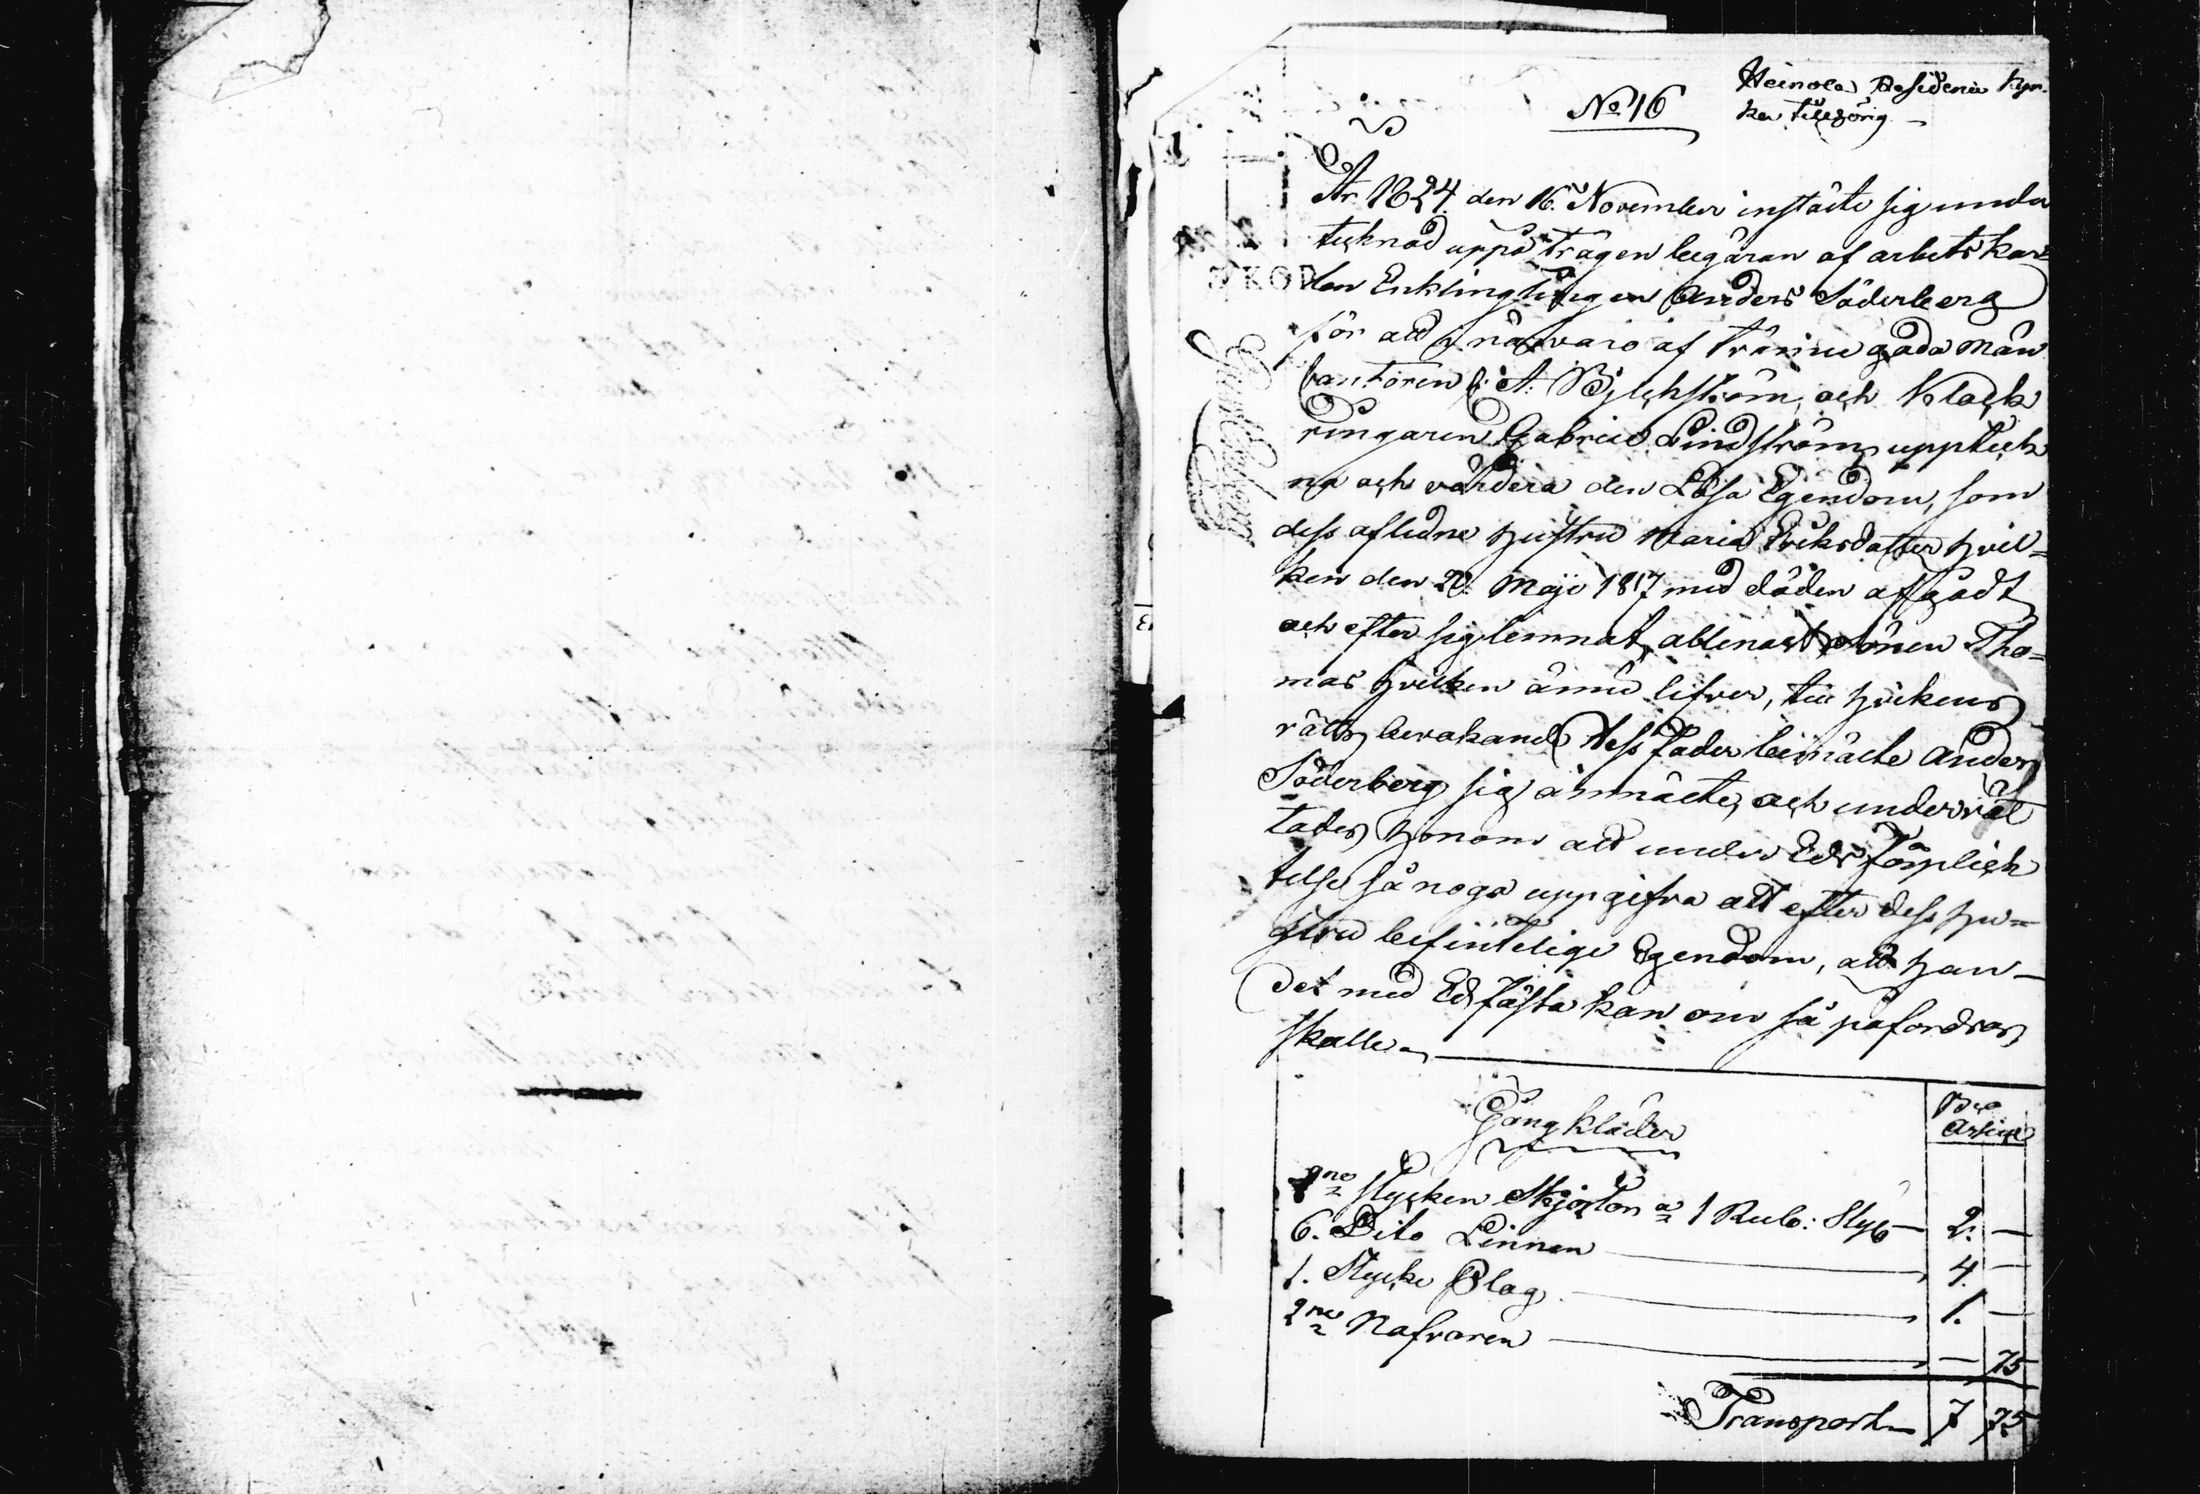 No 16
Heinola Residence kyr-
ka tillhörig
År 1824. den 16. November instälte sig under
tecknad uppå trägen begäran af arbets kar=
len Enklinglingen Anders Söderberg
för att i närvaro af tvänne goda Män
Cantoren A: Björkström, och Klock
ringaren Gabriel Lindström uppteck
na och värdera den Lösa Egendom, som
dess aflidne hustru Maria Eriksdatter hvil=
ken den 20. Maji 1817 med döden afgådt
och efter sig lemnat allenast sönen Tho=
mas hvilken ännu lefver, till hvilkens
rätts bevakand dess fader bemälte Anders
Söderberg sig anmälte, och underrät
tades honom att under Eds förplick
telse så noga uppgifva allt efter dess hu=
stru befintelige Egendom, att han
det med Ed fästa kan om så påfordras
skulle
Gång kläder
Bco
Assig
2ne stycken Skjortor a 1 Rub: Styk 2. —
6. Dito Linnen 4. —
1. Stycke Plag 1. —
2ne Nafvaren — 75
Transport 7 75